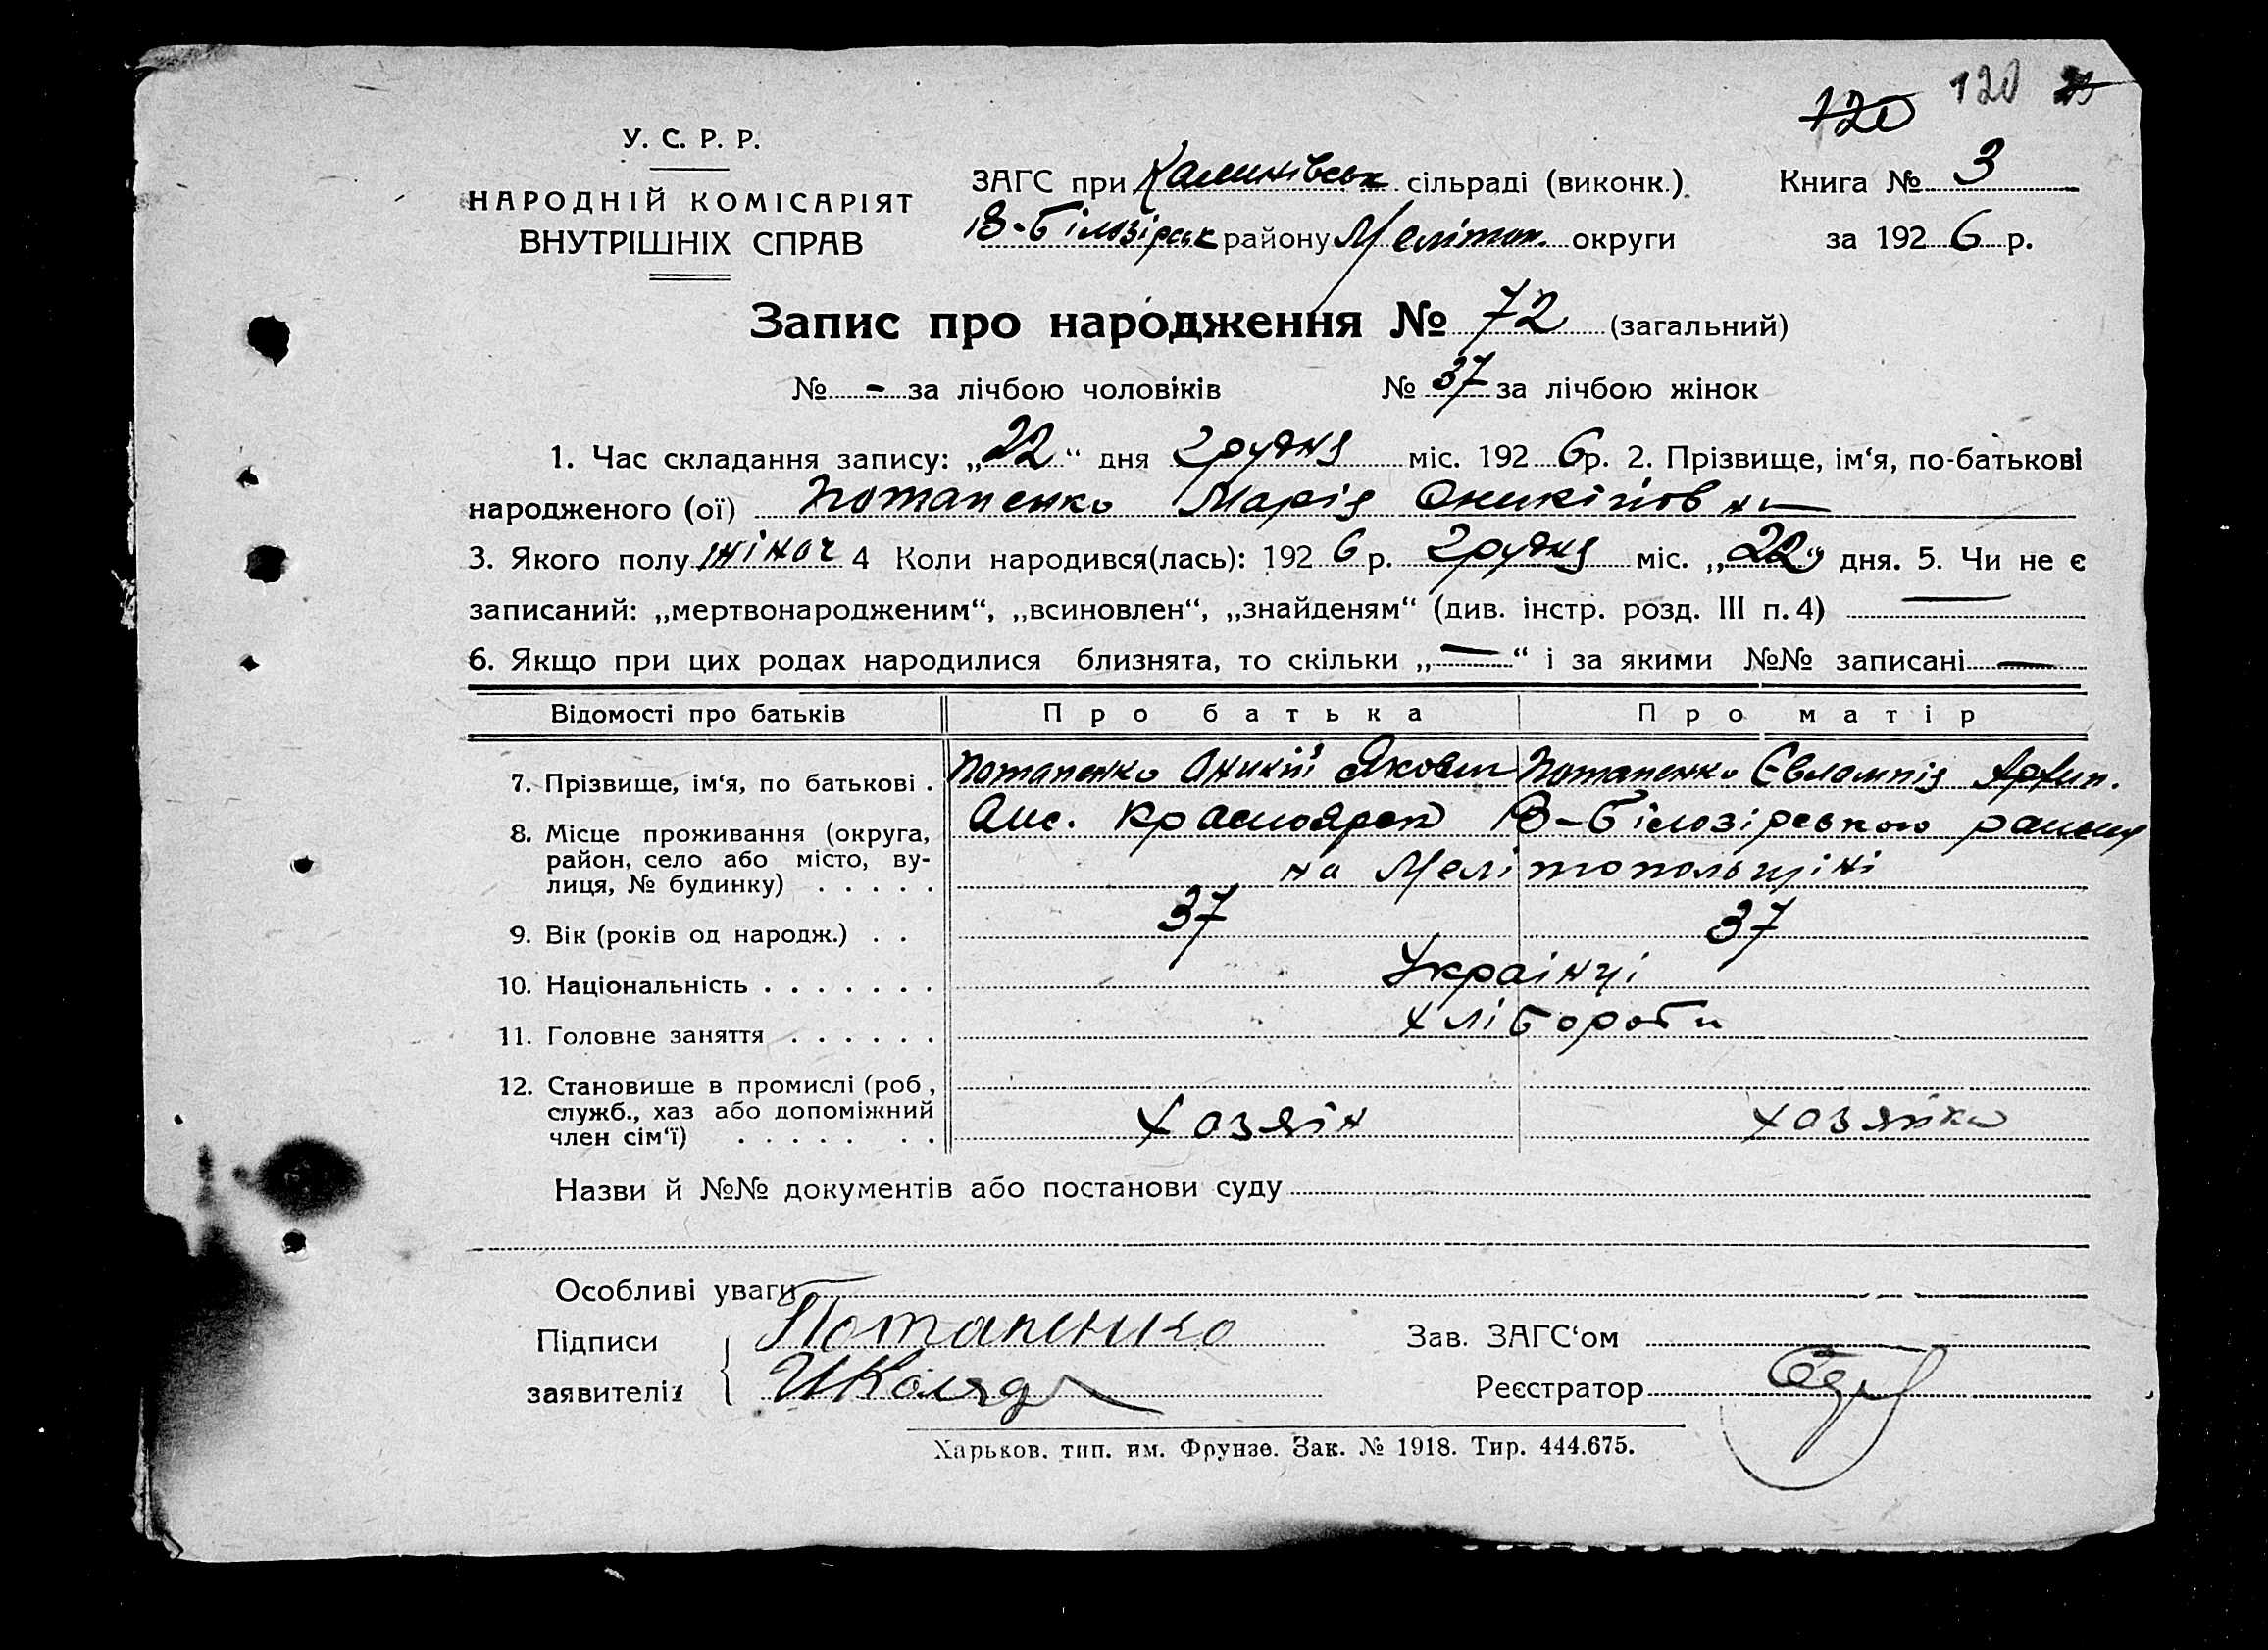 120 120
У. С. Р. Р.
НАРОДНІЙ КОМІСАРІЯТ
ВНУТРІШНІХ СПРАВ
ЗАГС при сільраді (виконк.)
В-Білозірськ району Мелітоп. округи
Книга № 3
за 192 6 р.
Запис про народження № 72 (загальний)
№ - за лічбою чоловіків № 37 за лічбою жінок
1. Час складання запису: „22“ дня грудня міс. 192 6 р. 2. Прізвище, ім‘я, по-батькові
народженого (ої) Потапенко Марія Оникіївна
3. Якого полу жіноч 4 Коли народився(лась): 192 6 р. грудня міс. „ “ дня. 5. Чи не є
записаний: „мертвонародженим“, „всиновлен“, „знайденям“ (див. інстр. розд. III п. 4) —
6. Якщо при цих родах народилися близнята, то скільки „—“ і за якими №№ записані —
Відомості про батьків Про батька Про матір
7. Прізвище, ім‘я, по батькові . Потапенко Оникій Якович Потапенко Євлампія Архип.
8. Місце проживання (округа, район, село або місто, ву-лиця, № будинку) . . . . . В-Білозірського району
на Мелітопольщіні
9. Вік (років од народж.) . . 37 37
10. Національність . . . . . . . Українці
11. Головне заняття . . . . . . Хлібороби
12. Становище в промислі (роб , служб., хаз або допоміжний член сім‘ї) . . . . . . . Хозяїн Хозяйка
Назви й №№ документів або постанови суду
Особливі уваги
Підписи Потапенко Зав. ЗАГС‘ом
заявителів Реєстратор
Харьков. тип. им. Фрунзе. Зак. № 1918. Тир. 444.675.